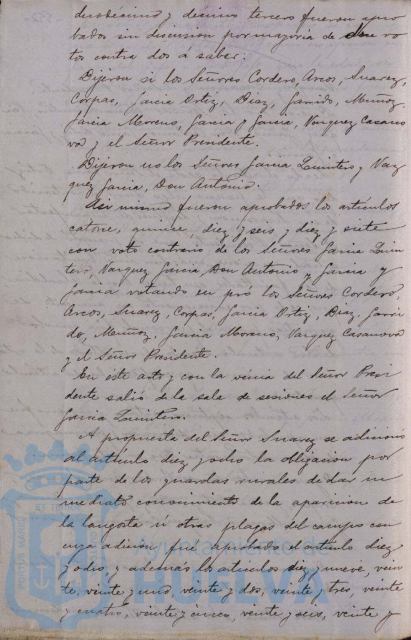 duodécimo y décimo tercero fueron apro
bados sin discusion por mayoria de doce vo
tos contra dos á saber:
Dijeron si los Señores Cordero, Arcos, Suarez,
Corpas, Garcia Ortiz, Diaz, Garrido, Muñoz,
Garcia Moreno, Garcia y Garcia, Vazquez Casano
va y el Señor Presidente.
Dijeron no los Señores Garcia Quintero y Vaz
quez Garcia, Don Antonio.
Asi mismo fueron aprobados los articulos
catorce, quince, diez y seis y diez y siete
con voto contrario de los Señores Garcia Quin
tero, Vazquez Garcia, Don Antonio y Garcia y
Garcia votando en pró los Señores Cordero,
Arcos, Suarez, Corpas, Garcia Ortiz, Diaz, Garri
do, Muñoz, Garcia Moreno, Vazquez Casanova
y el Señor Presidente.
En este acto y con la venia del Señor Presi
dente salió de la sala de sesiones el Señor
Garcia Quintero.
A propuesta del Señor Suarez se adicionó
al articulo diez y ocho la obligacion por
parte de los guardas rurales de dar in
mediato conocimiento de la aparicion de
la langosta ú otras plagas del campo con
cuya adicion fué aprobado el articulo diez
y ocho y además los articulos diez y nueve, vein
te, veinte y uno, veinte y dos, veinte y tres, veinte
y cuatro, veinte y cinco, veinte y seis, veinte y
Ayuntamiento de
HUELVA